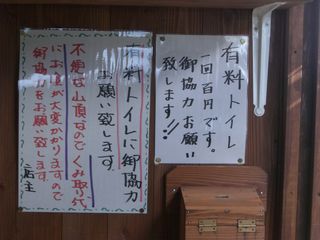 有料トイレ
一回百円です。
御協力お願い
致します!!
有料トイレに御協力
お願い致します。
不便な山頂なのでくみ取り代
にお金が大変かかりますので
御協力をお願い致します。
店主